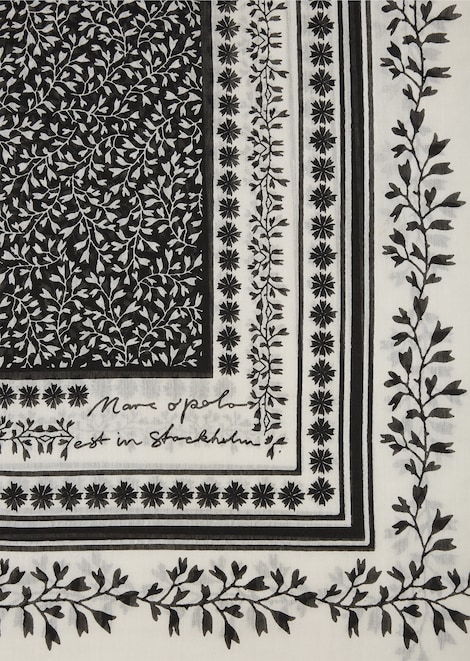 Marc o'polo
est in Stockholm